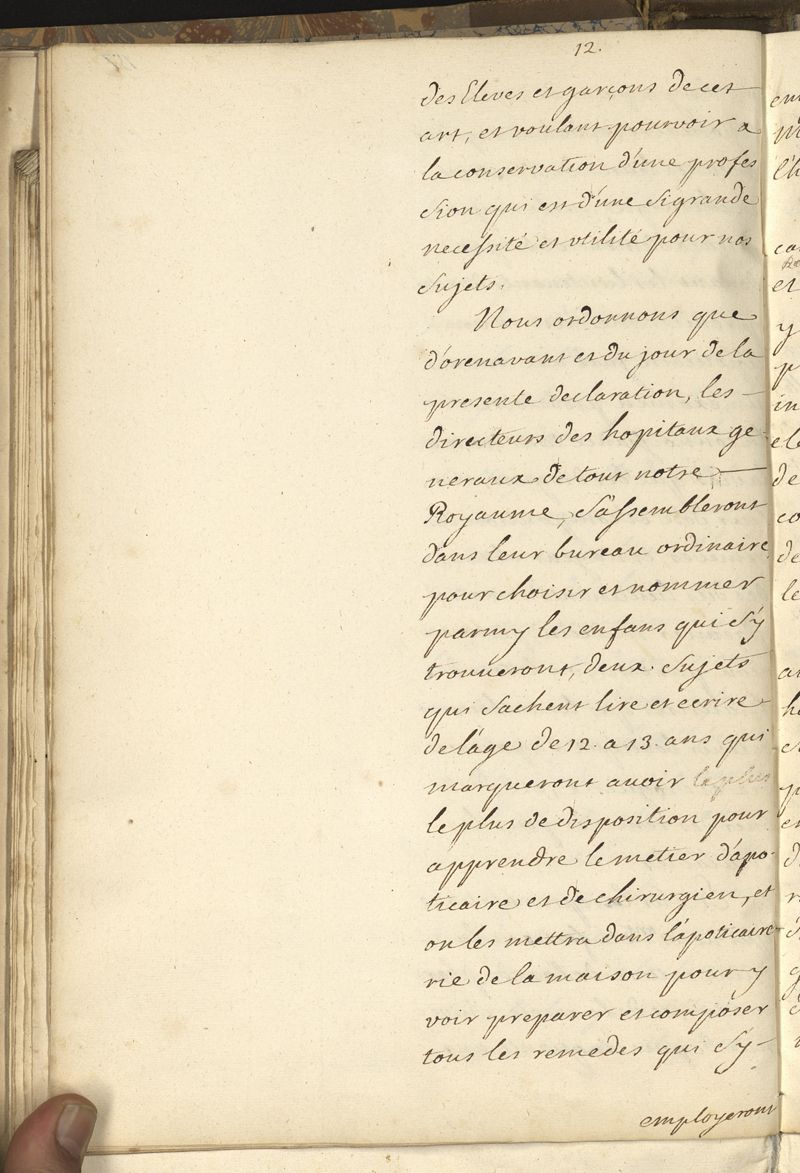 12.
des Eleves et garçons de cet
art, et voulant pourvoir a
la conservation d'une profes
sion qui est d'une si grande
necessité et vtilité pour nos
sujets.
Nous ordonnons que
d'orenavant et du jour de la
presente declaration, les
directeurs des hopitaux ge
neraux de tout notre
Royaume, s'assembleront
dans leur bureau ordinaire
pour choisir et nommer
parmy les enfans qui s'y
trouueront, deux sujets
qui sachent lire et ecrire
de l'age de 12. a 13. ans qui
marqueront auoir le plus
le plus de disposition pour
apprendre le metier d'apo
ticaire et de chirurgien, et
on les mettra dans l'apoticaire-
rie de la maison pour y
voir preparer et composer
tous les remedes qui s'y
employeront